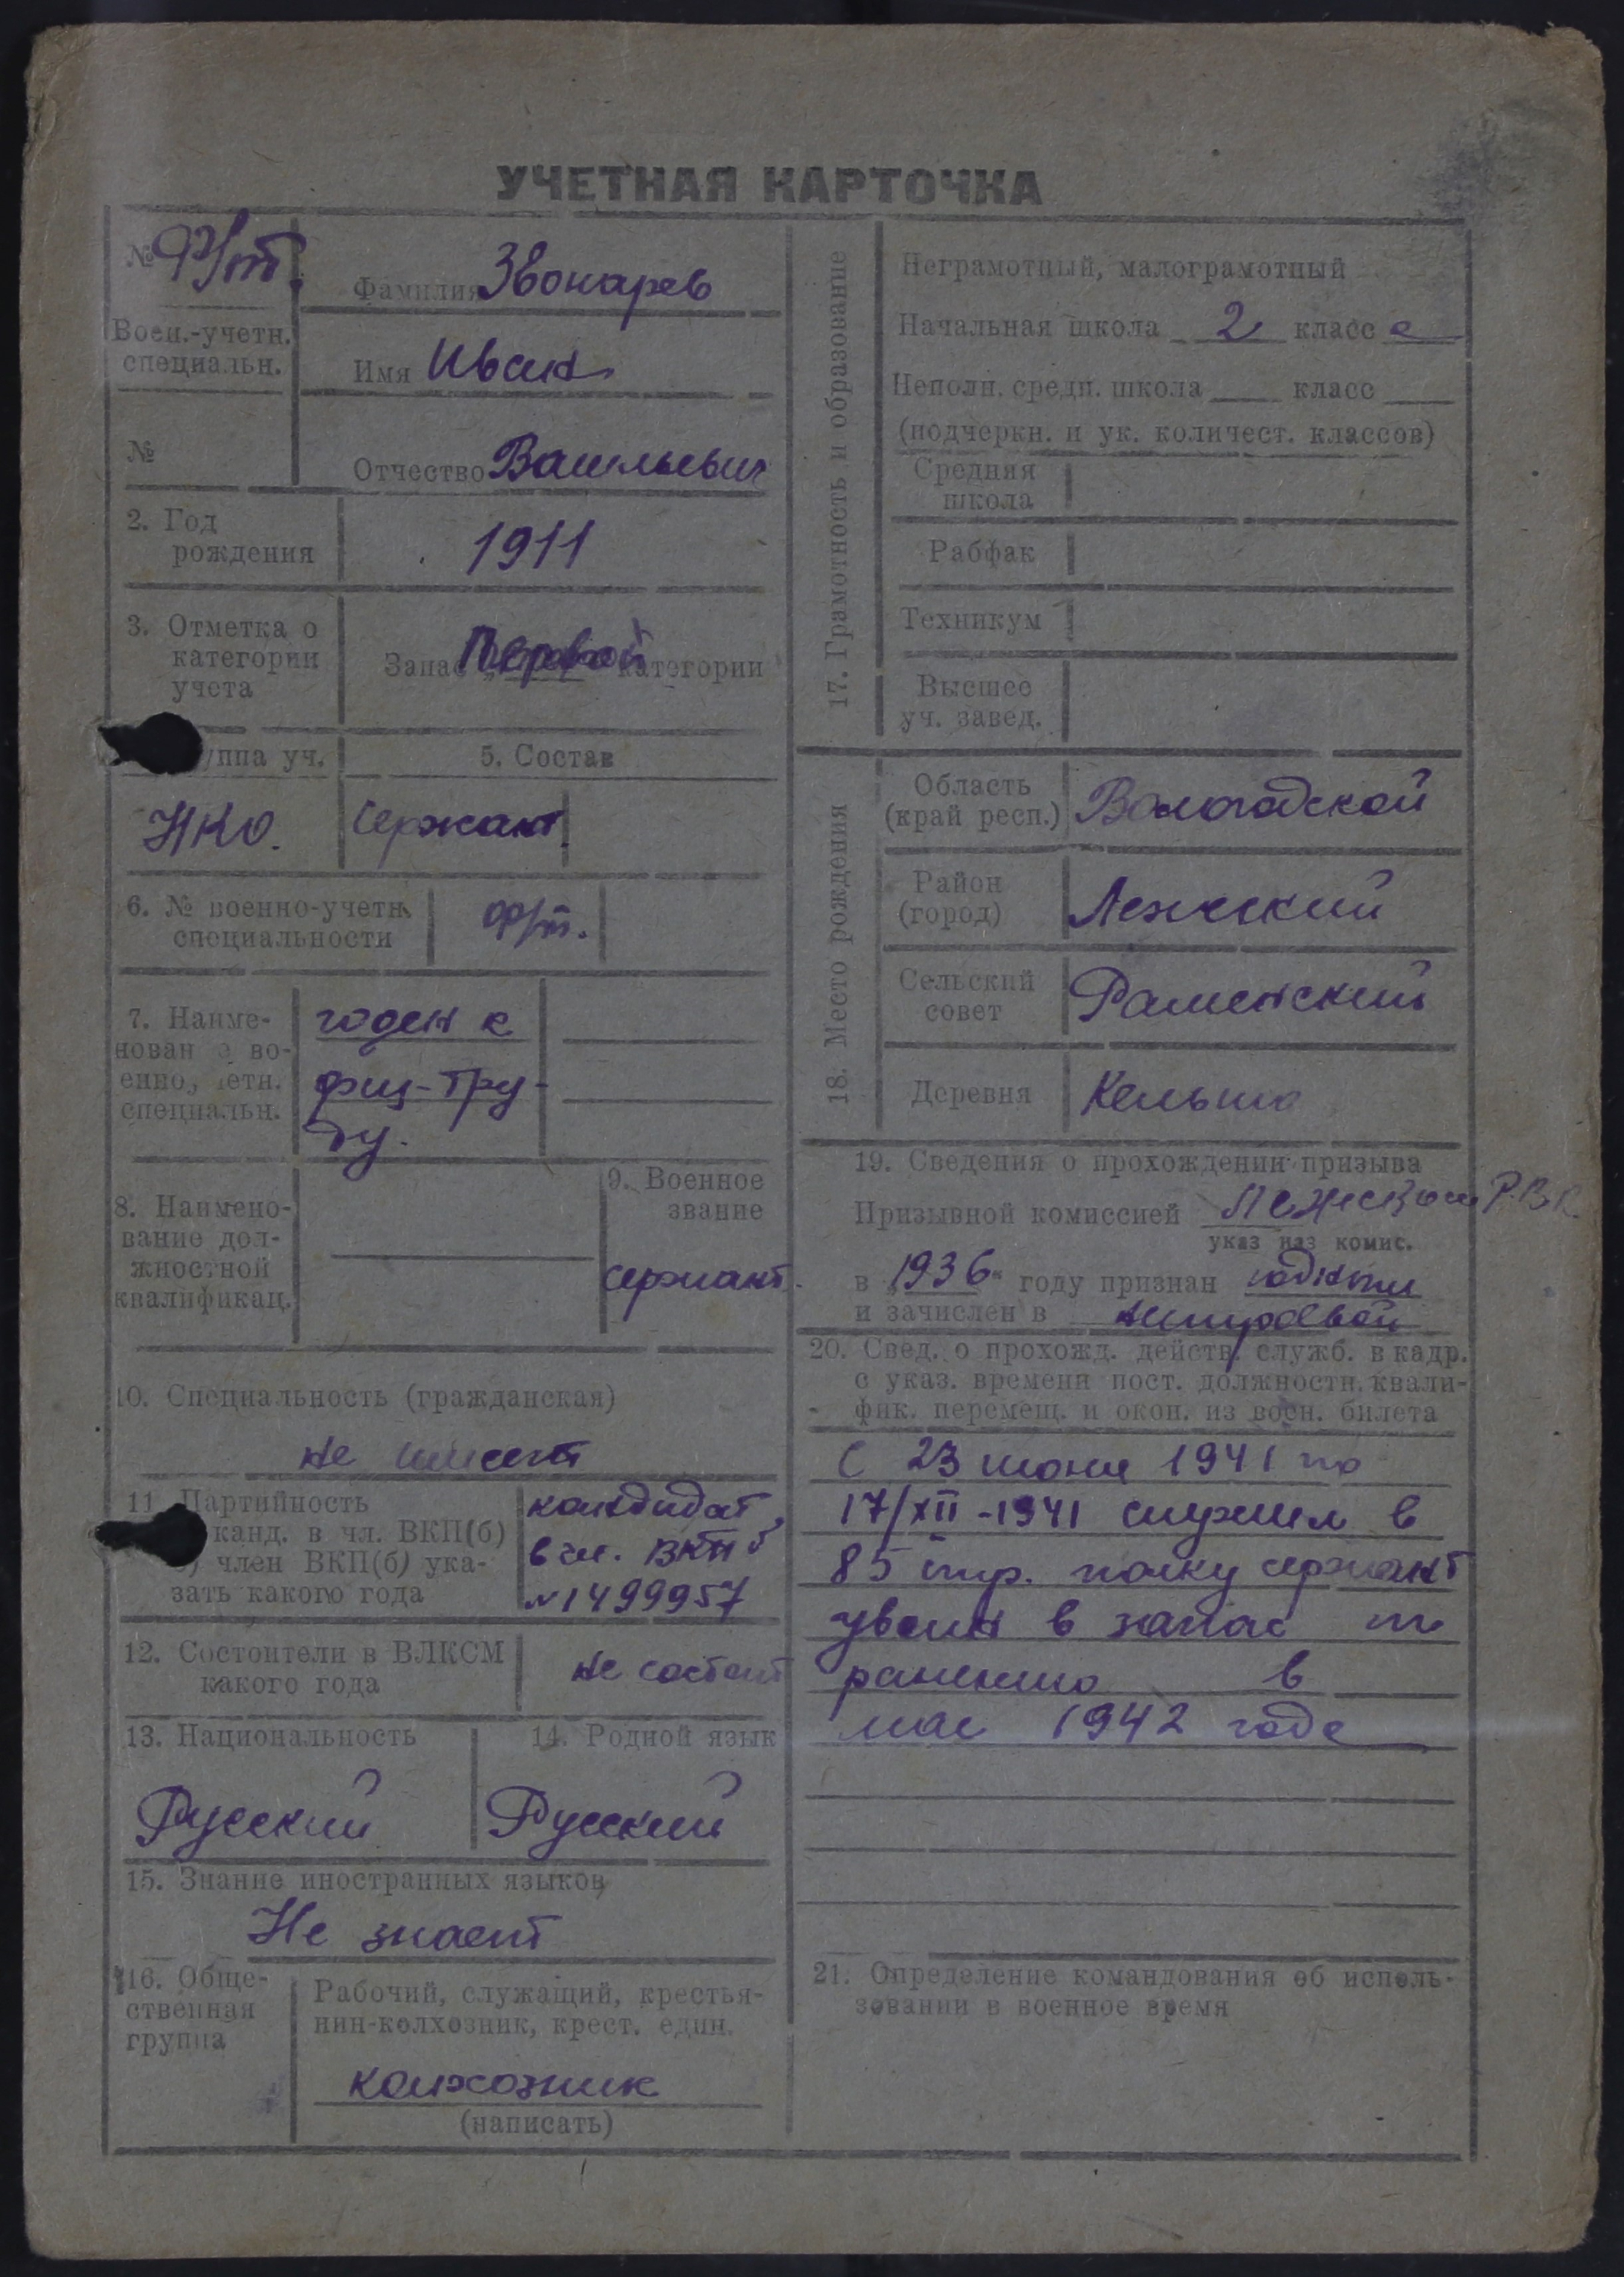 УЧЕТНАЯ КАРТОЧКА
№ Ф/т.
Воен.-учетн.
специальн.
№
Фамилия Звонарев
Имя Иван
Отчество Васильевич
2. Год
рождения
1911
3. Отметка о
категории
учета
Запас Первой категории
уппа уч.
5. Состав
НКО.
Сержант
6. № военно-учетн.
специальности
ф/т.
7. Наиме-
нован е во-
енно, етн.
специальн.
годен к
физ-тру-
ду.
8. Наимено-
вание дол-
жностной
квалификац.
9. Военное
звание
сержант.
10. Специальность (гражданская)
не имеет
11. Партийность
канд. в чл. ВКП(б)
) член ВКП(б) ука-
зать какого года
кандидат
в чл. ВКП б
№1499957
12. Состоители в ВЛКСМ
какого года
не состоит
13. Национальность
Русский
14. Родной язык
Русский
15. Знание иностранных языков
Не знает
16. Обще-
ственная
группа
Рабочий, служащий, крестья-
нин-колхозник, крест. един.
колхозник
(написать)
17. Грамотность и образование
Неграмотный, малограмотный
Начальная школа 2 класс а
Неполн. средн. школа класс
(подчеркн. и ук. количест. классов)
Средняя
школа
Рабфак
Техникум
Высшее
уч. завед.
18. Место рождения
Область
(край респ.)
Вологодской
Район
(город)
Лежский
Сельский
совет
Раменский
Деревня
19. Сведения о прохождении призыва
Призывной комиссией Лежским Р.В.К.
указ наз комис.
в 1936 году признан годным
и зачислен в
20. Свед. о прохожд. действ. служб. в кадр.
с указ. времени пост. должностн. квали-
фик. перемещ. и окон. из воен. билета
С 23 июня 1941 по
17/XII-1941 служил в
85 стр. полку сержант
уволен в запас по
ранению в
мае 1942 года
21. Определение командования об исполь-
зовании в военное время